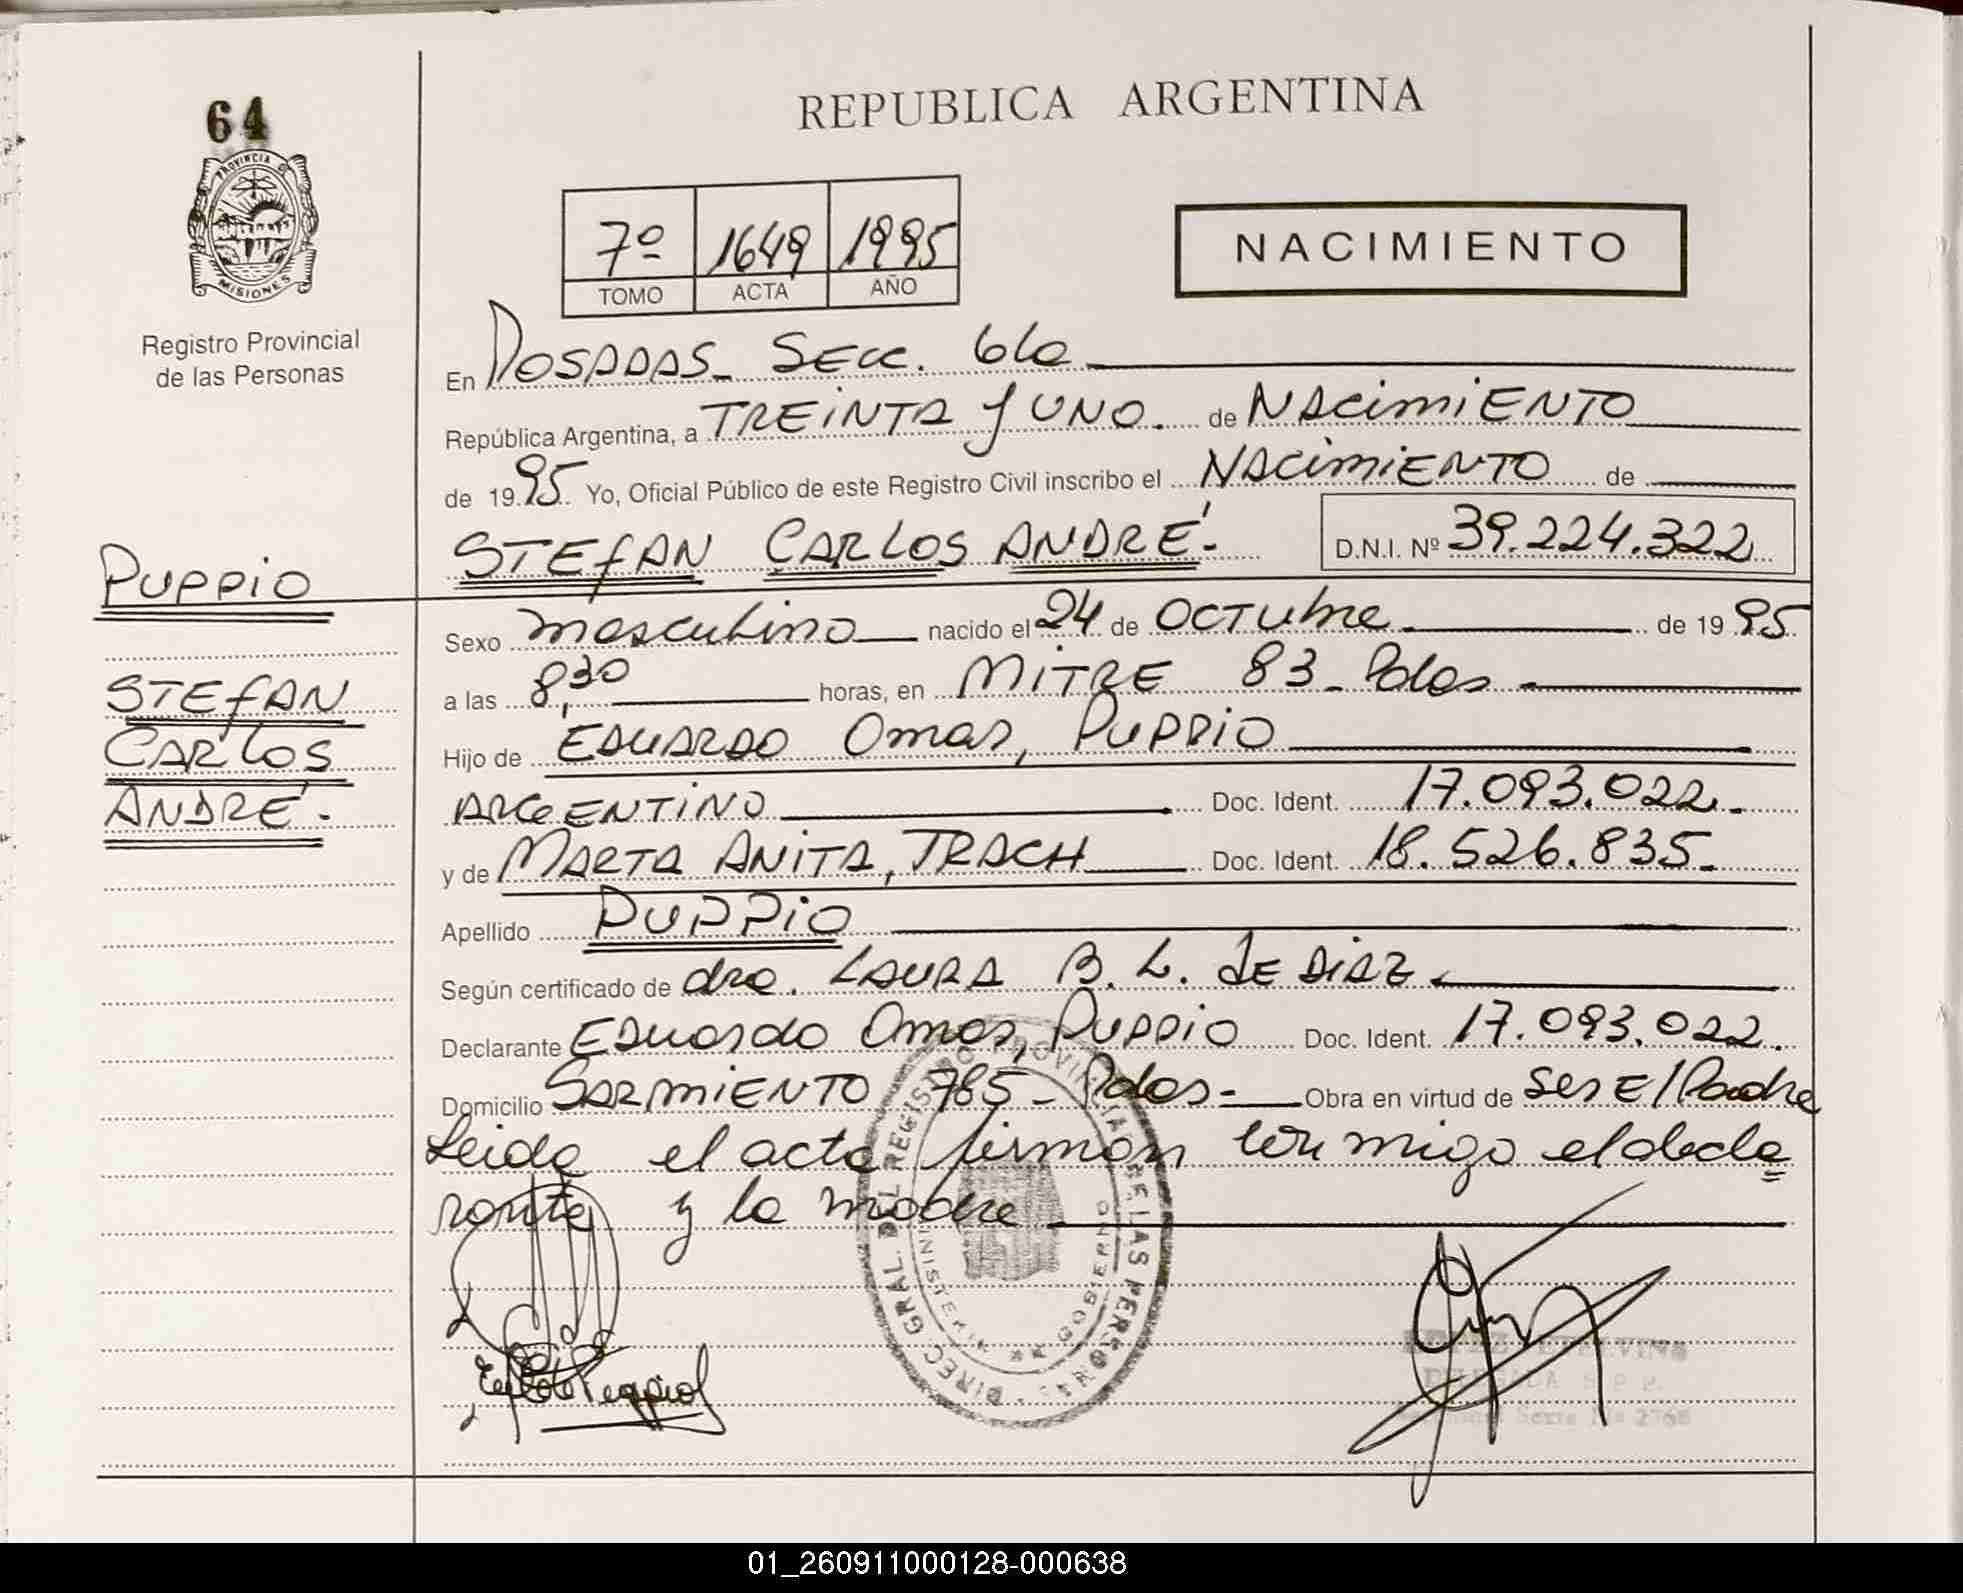 64
PROVINCIA DE
MISIONES
Registro Provincial
de las Personas
REPUBLICA ARGENTINA
7º 1649 1995
TOMO ACTA AÑO
NACIMIENTO
En POSADAS - SECC. 6ta
República Argentina, a TREINTA y UNO. de NACIMIENTO
de 1995. Yo, Oficial Público de este Registro Civil inscribo el NACIMIENTO de
STEFAN CARLOS ANDRÉ.- D.N.I. Nº 39.224.322
PUPPIO
STEFAN
CARLOS
ANDRÉ.-
Sexo masculino nacido el 24 de OCTUbre de 1995
a las 8,30 horas, en MITRE 83 - Pdas
Hijo de EDUARDO Omar, PUPPIO
ARGENTINO Doc. Ident. 17.093.022.-
y de MARTA ANITA, TRACH Doc. Ident. 18.526.835.-
Apellido PUPPIO
Según certificado de dra. LAURA B. L. de DIAZ.
Declarante Eduardo Omar, PUPPIO Doc. Ident. 17.093.022.
Domicilio SARMIENTO 785 - Pdas - Obra en virtud de ser El Padre
Leida el acta firman conmigo el decla=
rante y la madre
DIREC. GRAL. DEL REGISTRO PROVINCIAL DE LAS PERSONAS
MINISTERIO GOBIERNO
DELEGADA R.P.P.
Seccional Sexta Ma 2768
01_260911000128-000638